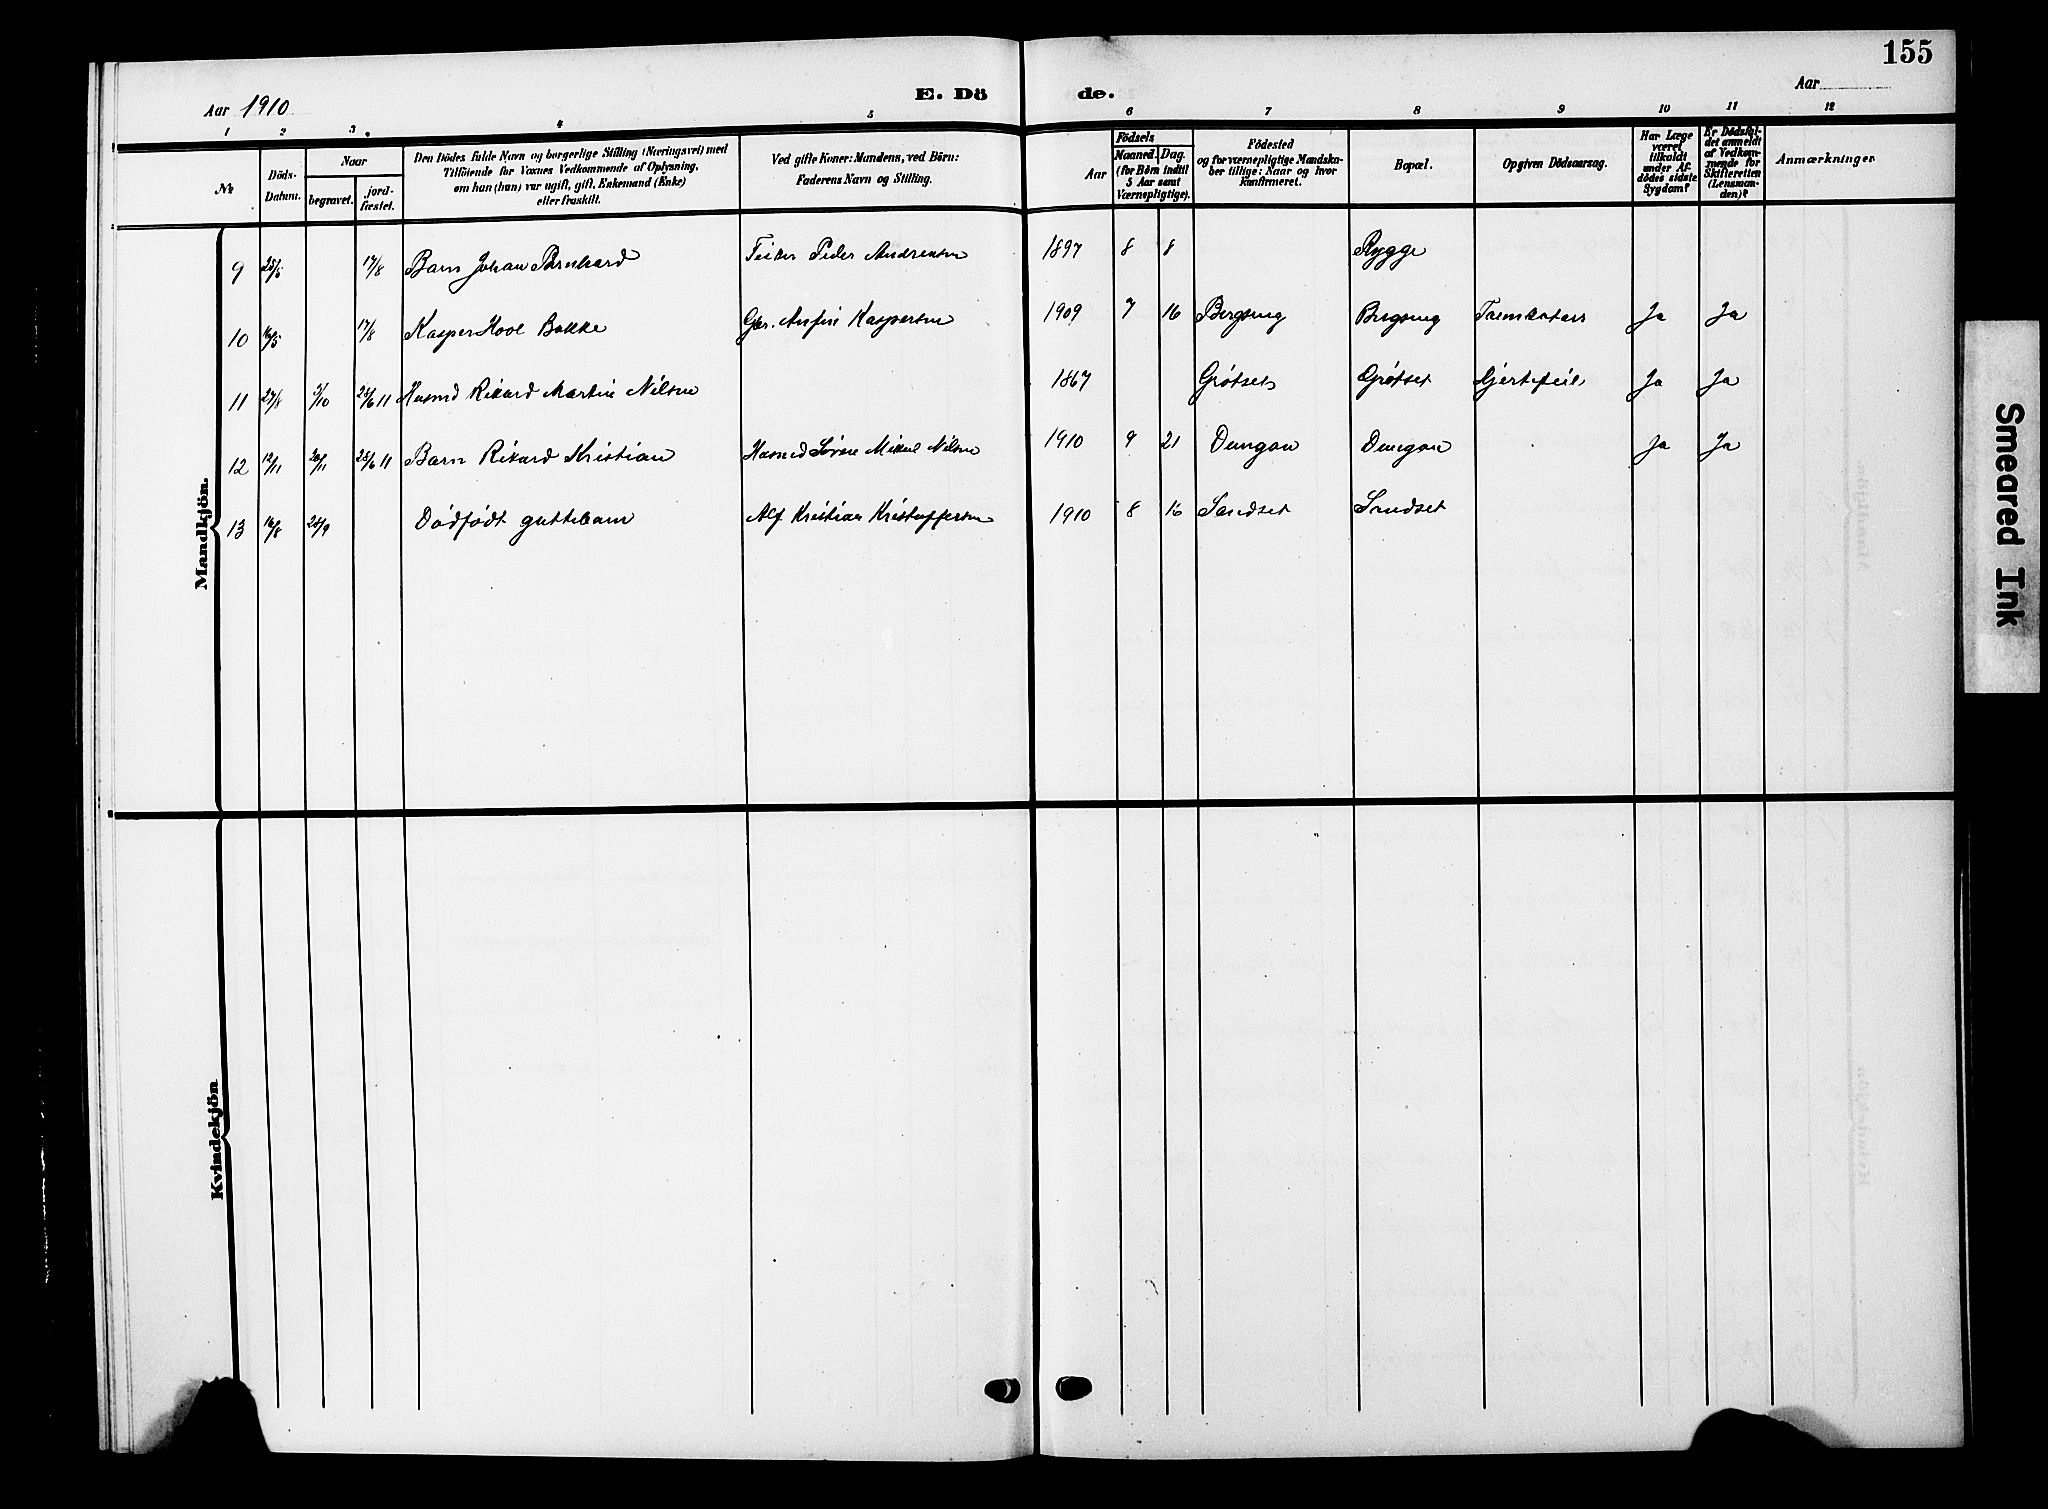 155
Aar 1910
E. Dö
de.
Aar
1 2 3. 4 5 6 7 8 9 10 11 12
No
Döds-
Datum.
Naar
begravet.
jord-
fæstet.
Den Dödes fulde Navn og borgerlige Stilling (Næringsvei) med
Tilföiende for Voxnes Vedkommende af Oplysning,
om han (hun) var ugift, gift, Enkemand (Enke)
eller fraskilt.
Ved gifte Koner: Mandens, ved Börn:
Faderens Navn og Stilling.
Aar
Födsels
Maaned. Dag.
(for Börn indtil
5 Aar samt
Værnepligtige).
Födested
og for værnepligtige Mandska-
ber tillige: Naar og hvor
konfirmeret.
Bopæl.
Opgiven Dödsaarsag.
Har Læge
været
tilkaldt
under Af-
dödes sidste
Sygdom?
Er Dödsfal-
det anmeldt
af Vedkom-
mende for
Skifteretten
(Lensman-
den)?
Anmærkninger
Mandkjön.
9 25/5 17/8 Barn Johan Bernhard Peder Andreasen 1897 8 8 Rygge
10 16/5 17/8 Kasper Bakke Kaspersen 1909 7 16 Bergseng Bergseng Ja Ja
11 27/8 2/10 25/6 11 Husmd Rikard Martin Nilsen 1867 Grötset Grötset Hjertefeil Ja Ja
12 12/11 20/11 25/6 11 Barn Rikard Kristian Husmd Sören Mikal Nilsen 1910 9 21 Dungan Dungan Ja Ja
13 16/8 25/9 Dödfödt guttebarn Alf Kristian Kristoffersen 1910 8 16 Sandset Sandset
Kvindekjön
Smeared Ink